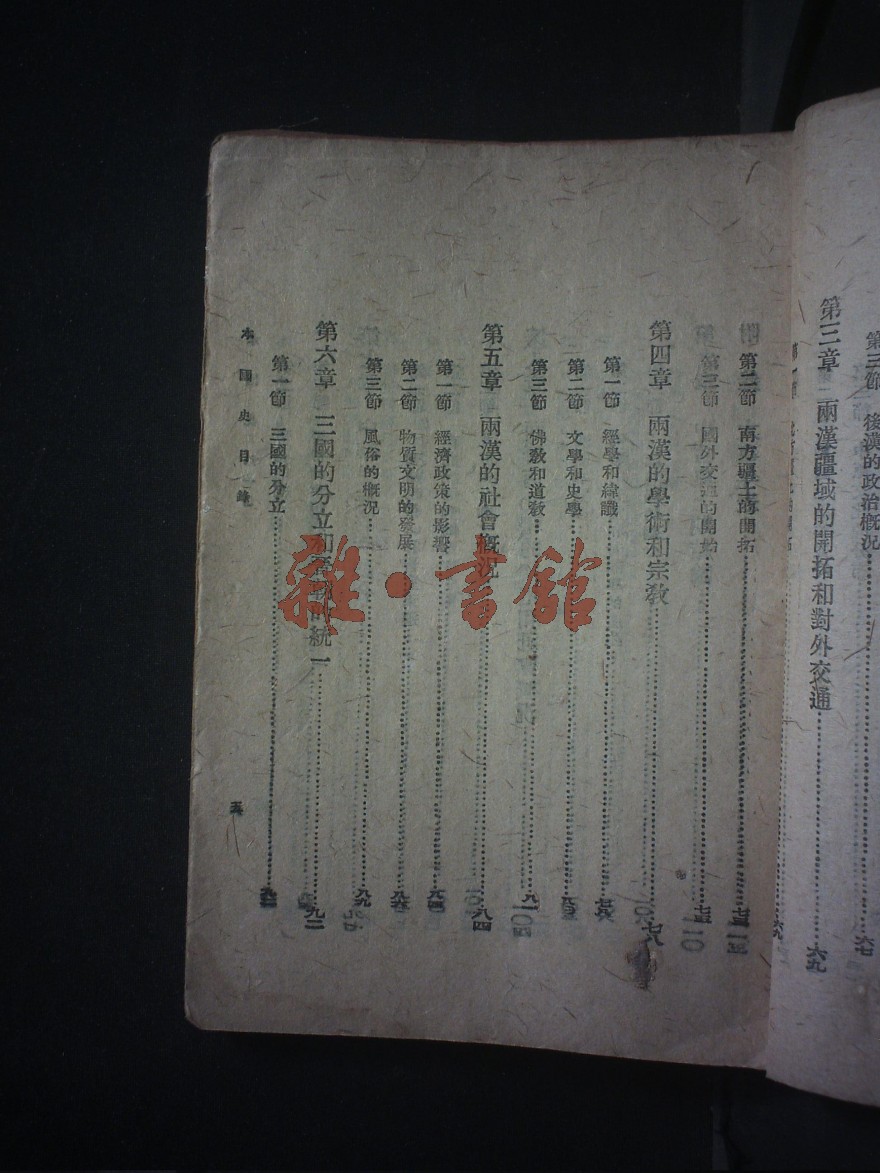 第三節 後漢的政治概況……六七
第三章 兩漢疆域的開拓和對外交通……六九
第一節……六九
第二節 南方疆土的開拓……七
第三節 國外交通的開始……七
第四章 兩漢的學術和宗教……七八
第一節 經學和緯讖……七八
第二節 文學和史學……八
第三節 佛教和道教……八
第五章 兩漢的社會概況……八四
第一節 經濟政策的影響……八四
第二節 物質文明的發展……八六
第三節 風俗的概況……八九
第六章 三國的分立和統一……九二
第一節 三國的分立……九二
本國史目錄
五
雜·書館